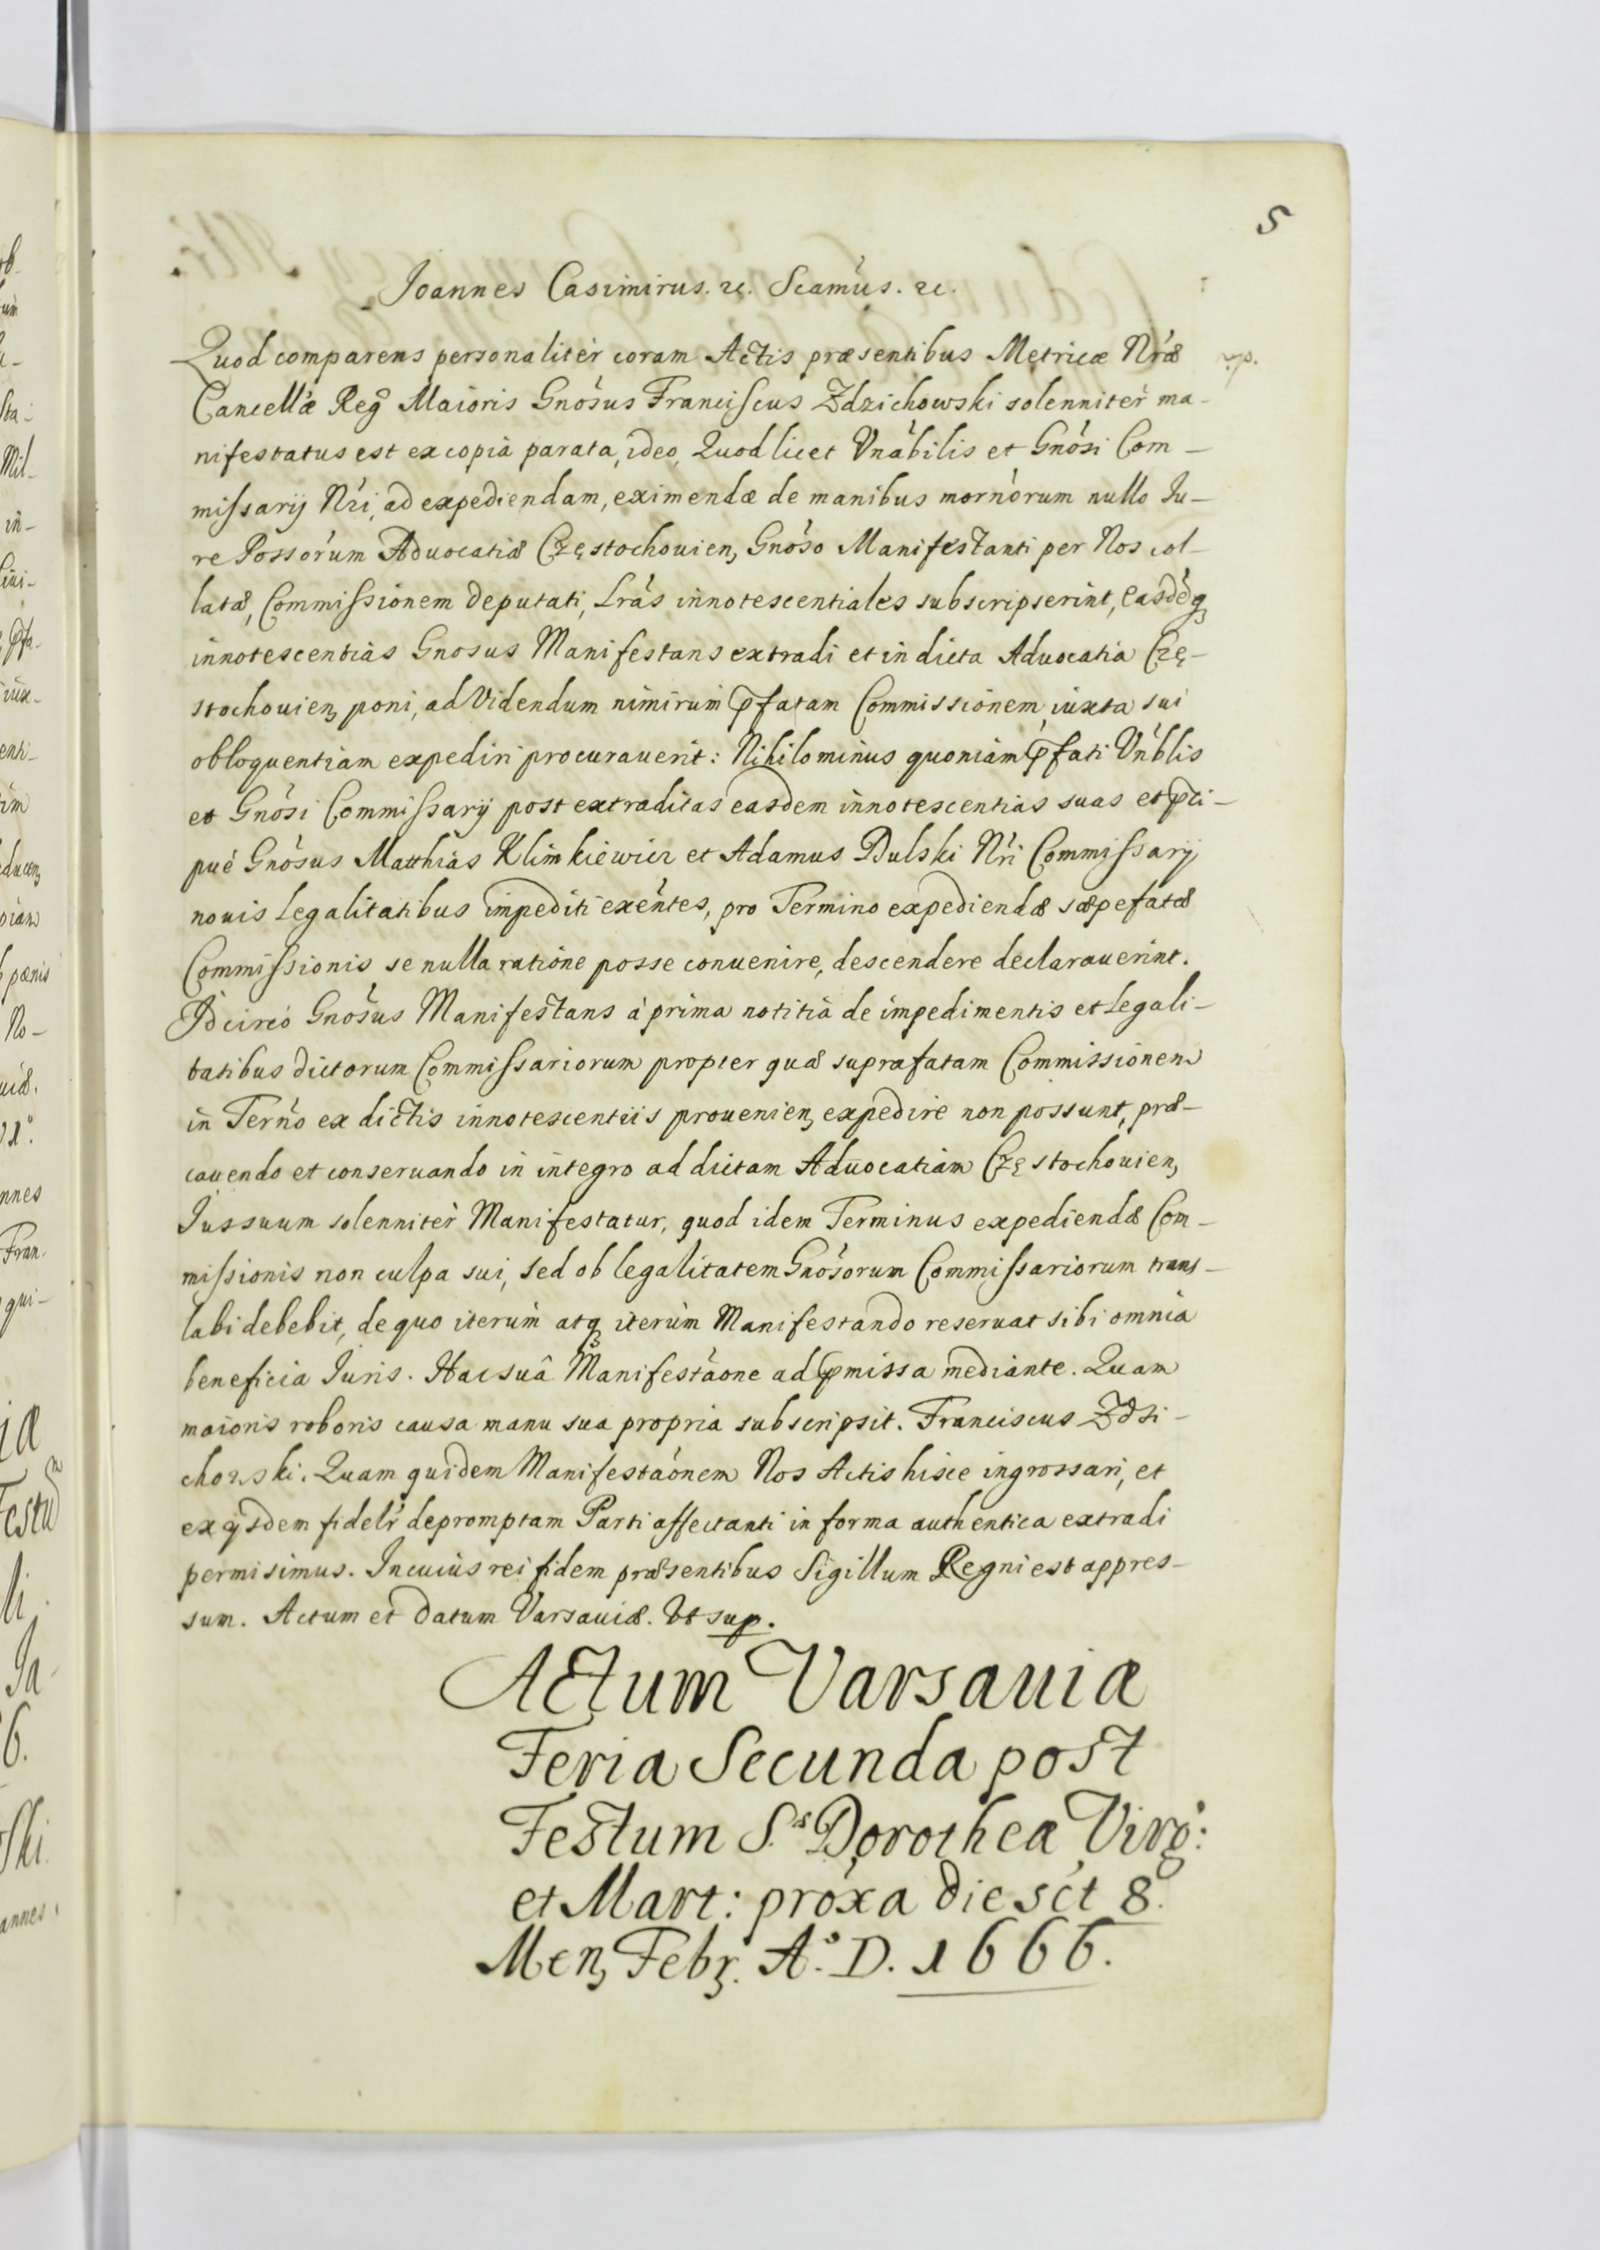 5
Joannes Casimirus. &c. Scamus. &c.
Quod comparens personalitèr coram Actis præsentibus Metricæ Nræ
Cancellæ Regº Maioris Gnosus Franciscus Zdzichowski solennitèr ma-
nifestatus est ex copia parata, ideo, Quod licet Vnabilis et Gnosi Com-
missarij Nri, ad expediendam, eximendæ de manibus mornorum nullo Ju-
re Possorum Aduocatiæ Częstochouien, Gnoso Manifestanti per Nos col-
latæ, Commissionem deputati, Lras innotescentiales subscripserint, easdeq
innotescentias Gnosus Manifestans extradi et in dicta Aduocatia Czę-
stochouien, poni, ad Videndum nimirum pfatam Commissionem, iuxta sui
obloquentiam expediri procurauerit: Nihilominus quoniam pfati Vnblis
et Gnosi Commissarij post extraditas easdem innotescentias suas et pci-
puè Gnosus Matthias Klimkiewicz et Adamus Dulski Nri Commissarij
nouis legalitatibus impediti exentes, pro Termino expediendæ sæpefatæ
Commissionis se nulla ratione posse conuenire, descendere declarauerint.
Idcircò Gnosus Manifestans à prima notitia de impedimentis et legali-
tatibus dictorum Commissariorum propter quæ suprafatam Commissionem
in Terno ex dictis innotescentiis prouenien, expedire non possunt, præ-
cauendo et conseruando in integro ad dictam Aduocatiam Częstochouien,
Jus suum solennitèr Manifestatur, quod idem Terminus expediendæ Com-
missionis non culpa sui, sed ob legalitatem Gnosorum Commissariorum trans-
labi debebit, de quo iterùm atq iterùm Manifestando reseruat sibi omnia
beneficia Juris. Hac suâ Manifestaone ad pmissa mediante. Quam
maioris roboris causa manu sua propria subscripsit. Franciscus Zdzi-
chowski. Quam quidem Manifestaonem Nos Actis hisce ingrossari, et
ex ijsdem fidelr depromptam Parti affectanti in forma authentica extradi
permisimus. In cuius rei fidem præsentibus Sigillum Regni est appres-
sum. Actum et datum Varsauiæ. Vt sup.
Actum Varsauiæ
Feria Secunda post
Festum S.ᵃ Dorotheæ Virg:
et Mart: proxa die sct 8.
Men, Febr. Aº. D. 1666.